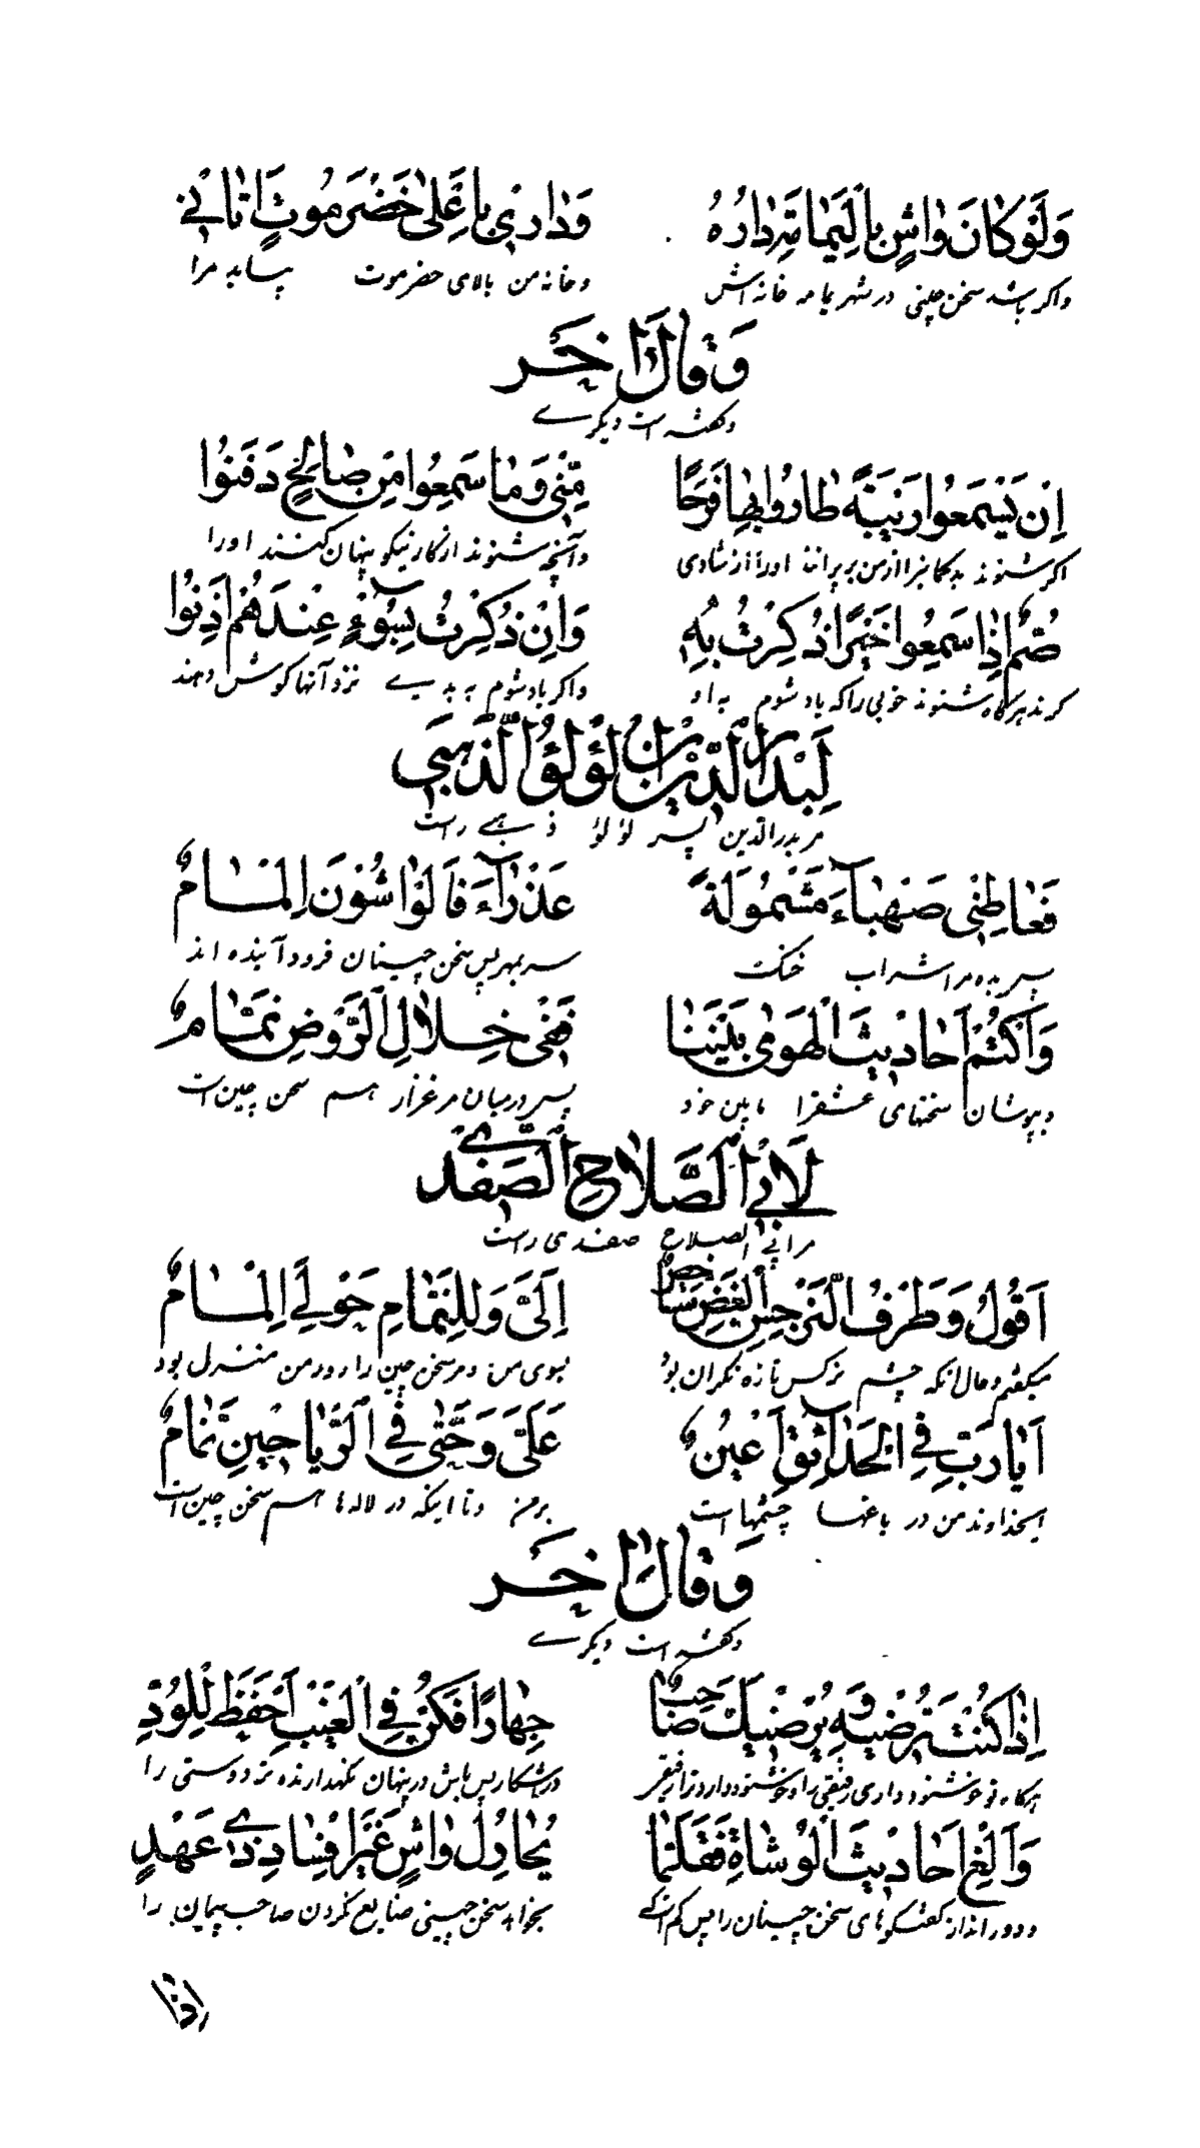 وَلَوْ كَانَ وَاشٍ بِالْيَمَامَةِ دَارُهُ    وَدَارِي بِاَعْلَى حَضْرَمَوْتٍ اَتَانِي
واکر باشد سخن چینی در شهر یمامه خانه اش    و خانه من بالای حضرموت بیاید مرا
وَقَالَ اٰخَر
و گفته است دیکرے
اِنْ يَسْمَعُوا رِيبَةً طَارُوا بِهَا فَرَحًا    مِنِّي وَمَا سَمِعُوا مِنْ صَالِحٍ دَفَنُوا
اکر شنوند بد کمانیرا از من بر پرانند اورا از شادی    و آنچه شنوند از کار نیکو پنهان کنند اورا
صُمٌّ اِذَا سَمِعُوا خَيْرًا ذُكِرْتُ بِهِ    وَاِنْ ذُكِرْتُ بِسُوْءٍ عِنْدَهُمْ اَذِنُوا
کرند هرکاه شنوند خوبی را که یاد شوم به او    واکر یاد شوم به بدیے نزد آنها کوش دهند
لِبَدْرِ الدِّيْنِ بْنِ لُؤْلُؤُ الذَّهَبِي
مر بدر الدین پسر لؤلؤ ذهبے راست
فَعَاطِنِي صَهْبَاءَ مَشْمُولَةً    عَذْرَاءَ فَالْوَاشُونَ اِلْمَامٌ
پس بده مرا شراب خنک    سر بمهر پس سخن چینان فرود آینده اند
وَاكْتُمْ اَحَادِيْثَ الْهَوٰى بَيْنَنَا    فَفِي خِلَالِ الرَّوْضِ نَمَّامٌ
و بپوشان سخنهای عشقرا مابین خود    پس درمیان مرغزار هم سخن چین است
لِاَبِي الصَّلَاحِ الصَّفَدِي
مر ابی الصلاح صفدی راست
اَقُوْلُ وَطَرْفُ النَّرْجِسِ الْغَضِّ شَاخِصٌ    اِلَيَّ وَلِلنَّمَّامِ حَوْلِي اِلْمَامٌ
میکفتم و حال آنکه چشم نرکس تازه نکران بود    بسوی من و مر سخن چین را در دور من منزل بود
اَيَا رَبِّ فِي الْحَدَائِقِ اَعْيُنٌ    عَلَيَّ وَحَتّٰى فِي الرَّيَاحِيْنِ نَمَّامٌ
ایخداوند من در باغها چشمها است    بر من و تا اینکه در لاله ها هم سخن چین است
وَقَالَ اٰخَر
و گفته است دیکرے
اِذَا كُنْتَ تَرْضِيهِ وَيُرْضِيكَ صَاحِبٌ    جِهَارًا فَكُنْ فِي الْغَيْبِ اَحْفَظَ لِلْوُدِّ
هرکاه تو خوشنود داری رفیقی را و خوشنود دارد ترا رفیق    در آشکار پس باش در پنهان نکهدارنده تر دوستی را
وَاَلْغِ اَحَادِيْثَ الْوُشَاةِ فَقَلَّمَا    يُحَاوِلُ وَاشٍ غَيْرَ اِفْسَادِ ذِي عَهْدٍ
و دور انداز کفتکوهای سخن چینان را پس کم است که    بخواهد سخن چینی ضایع کردن صاحب پیمان را
اِذَا